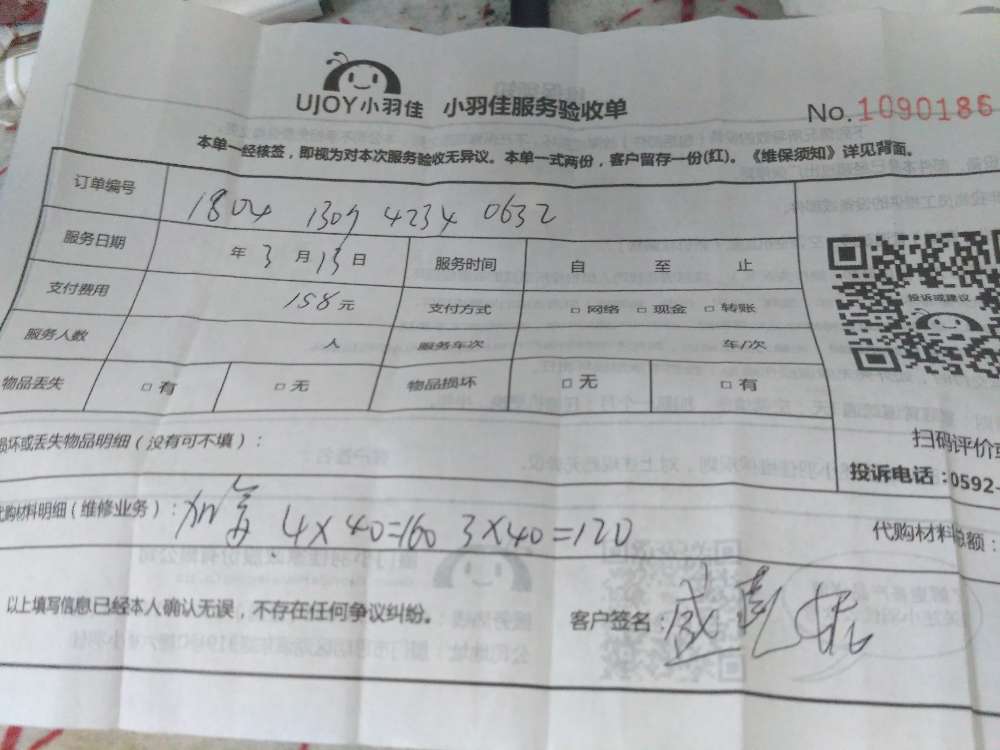 UJOY小羽佳 小羽佳服务验收单
No.1090186
本单一经核签，即视为对本次服务验收无异议。本单一式两份，客户留存一份(红)。《维保须知》详见背面。
订单编号 1804 1309 4234 0632
服务日期 年 3 月 13 日 服务时间 自 至 止
支付费用 158 元 支付方式 □ 网络 □ 现金 □ 转账
服务人数 人 服务车次 年/次
物品丢失 □ 有 □ 无 物品损坏 □ 无 □ 有
投诉或建议
扫码评价或
投诉电话：0592-
损坏或丢失物品明细（没有可不填）：
代购材料明细（维修业务）： 加氟 4×40=160 3×40=120
代购材料总额：
以上填写信息已经本人确认无误，不存在任何争议纠纷。
客户签名：